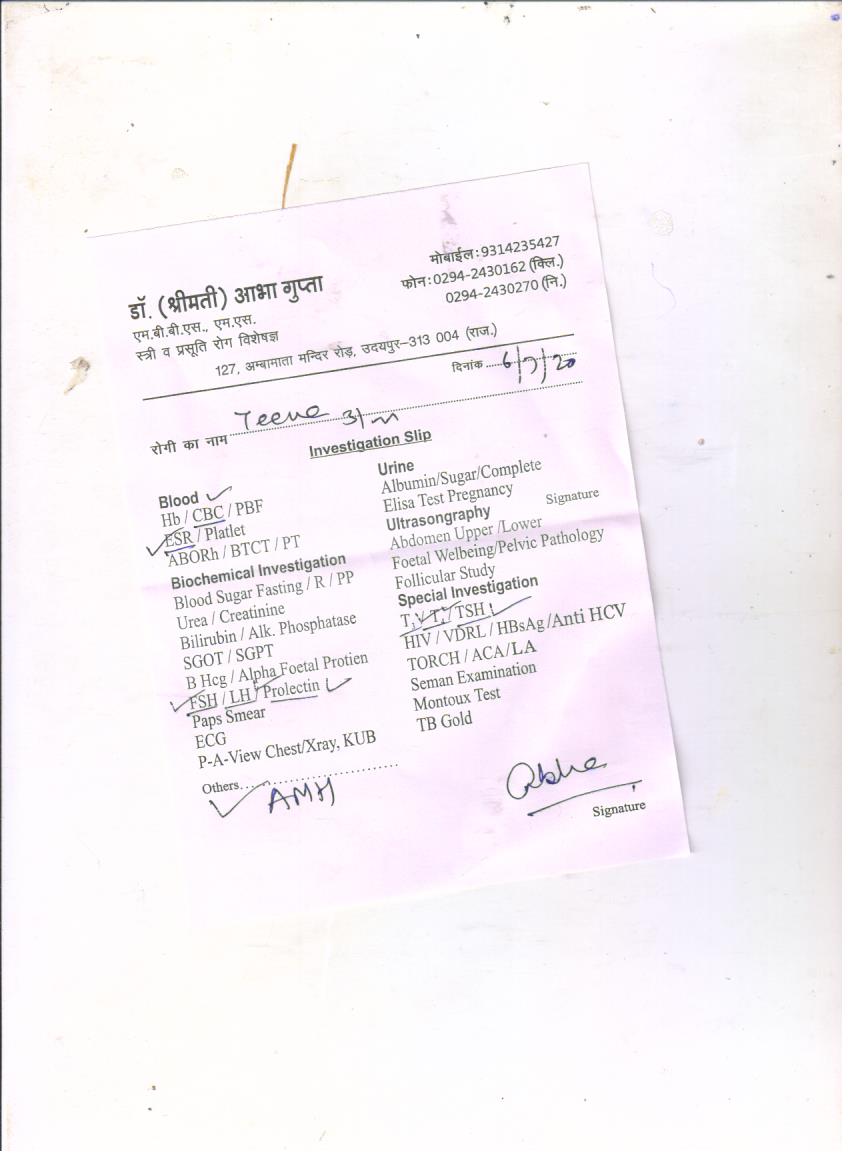 डॉ. (श्रीमती) आभा गुप्ता
एम.बी.बी.एस., एम.एस.
स्त्री व प्रसूति रोग विशेषज्ञ
मोबाईल:9314235427
फोन:0294-2430162 (क्लि.)
0294-2430270 (नि.)
127, अम्बामाता मन्दिर रोड़, उदयपुर–313 004 (राज.)
दिनांक 6/7/20
रोगी का नाम Teena
Investigation Slip
Blood
Hb / CBC / PBF
ESR / Platlet
ABORh / BTCT / PT
Biochemical Investigation
Blood Sugar Fasting / R / PP
Urea / Creatinine
Bilirubin / Alk. Phosphatase
SGOT / SGPT
B Hcg / Alpha Foetal Protien
FSH / LH / Prolectin
Paps Smear
ECG
P-A-View Chest/Xray, KUB
Others
AMH
Urine
Albumin/Sugar/Complete
Elisa Test Pregnancy
Signature
Ultrasongraphy
Abdomen Upper /Lower
Foetal Welbeing/Pelvic Pathology
Follicular Study
Special Investigation
T, T, / TSH
HIV / VDRL / HBsAg / Anti HCV
TORCH / ACA/LA
Seman Examination
Montoux Test
TB Gold
Abha
Signature